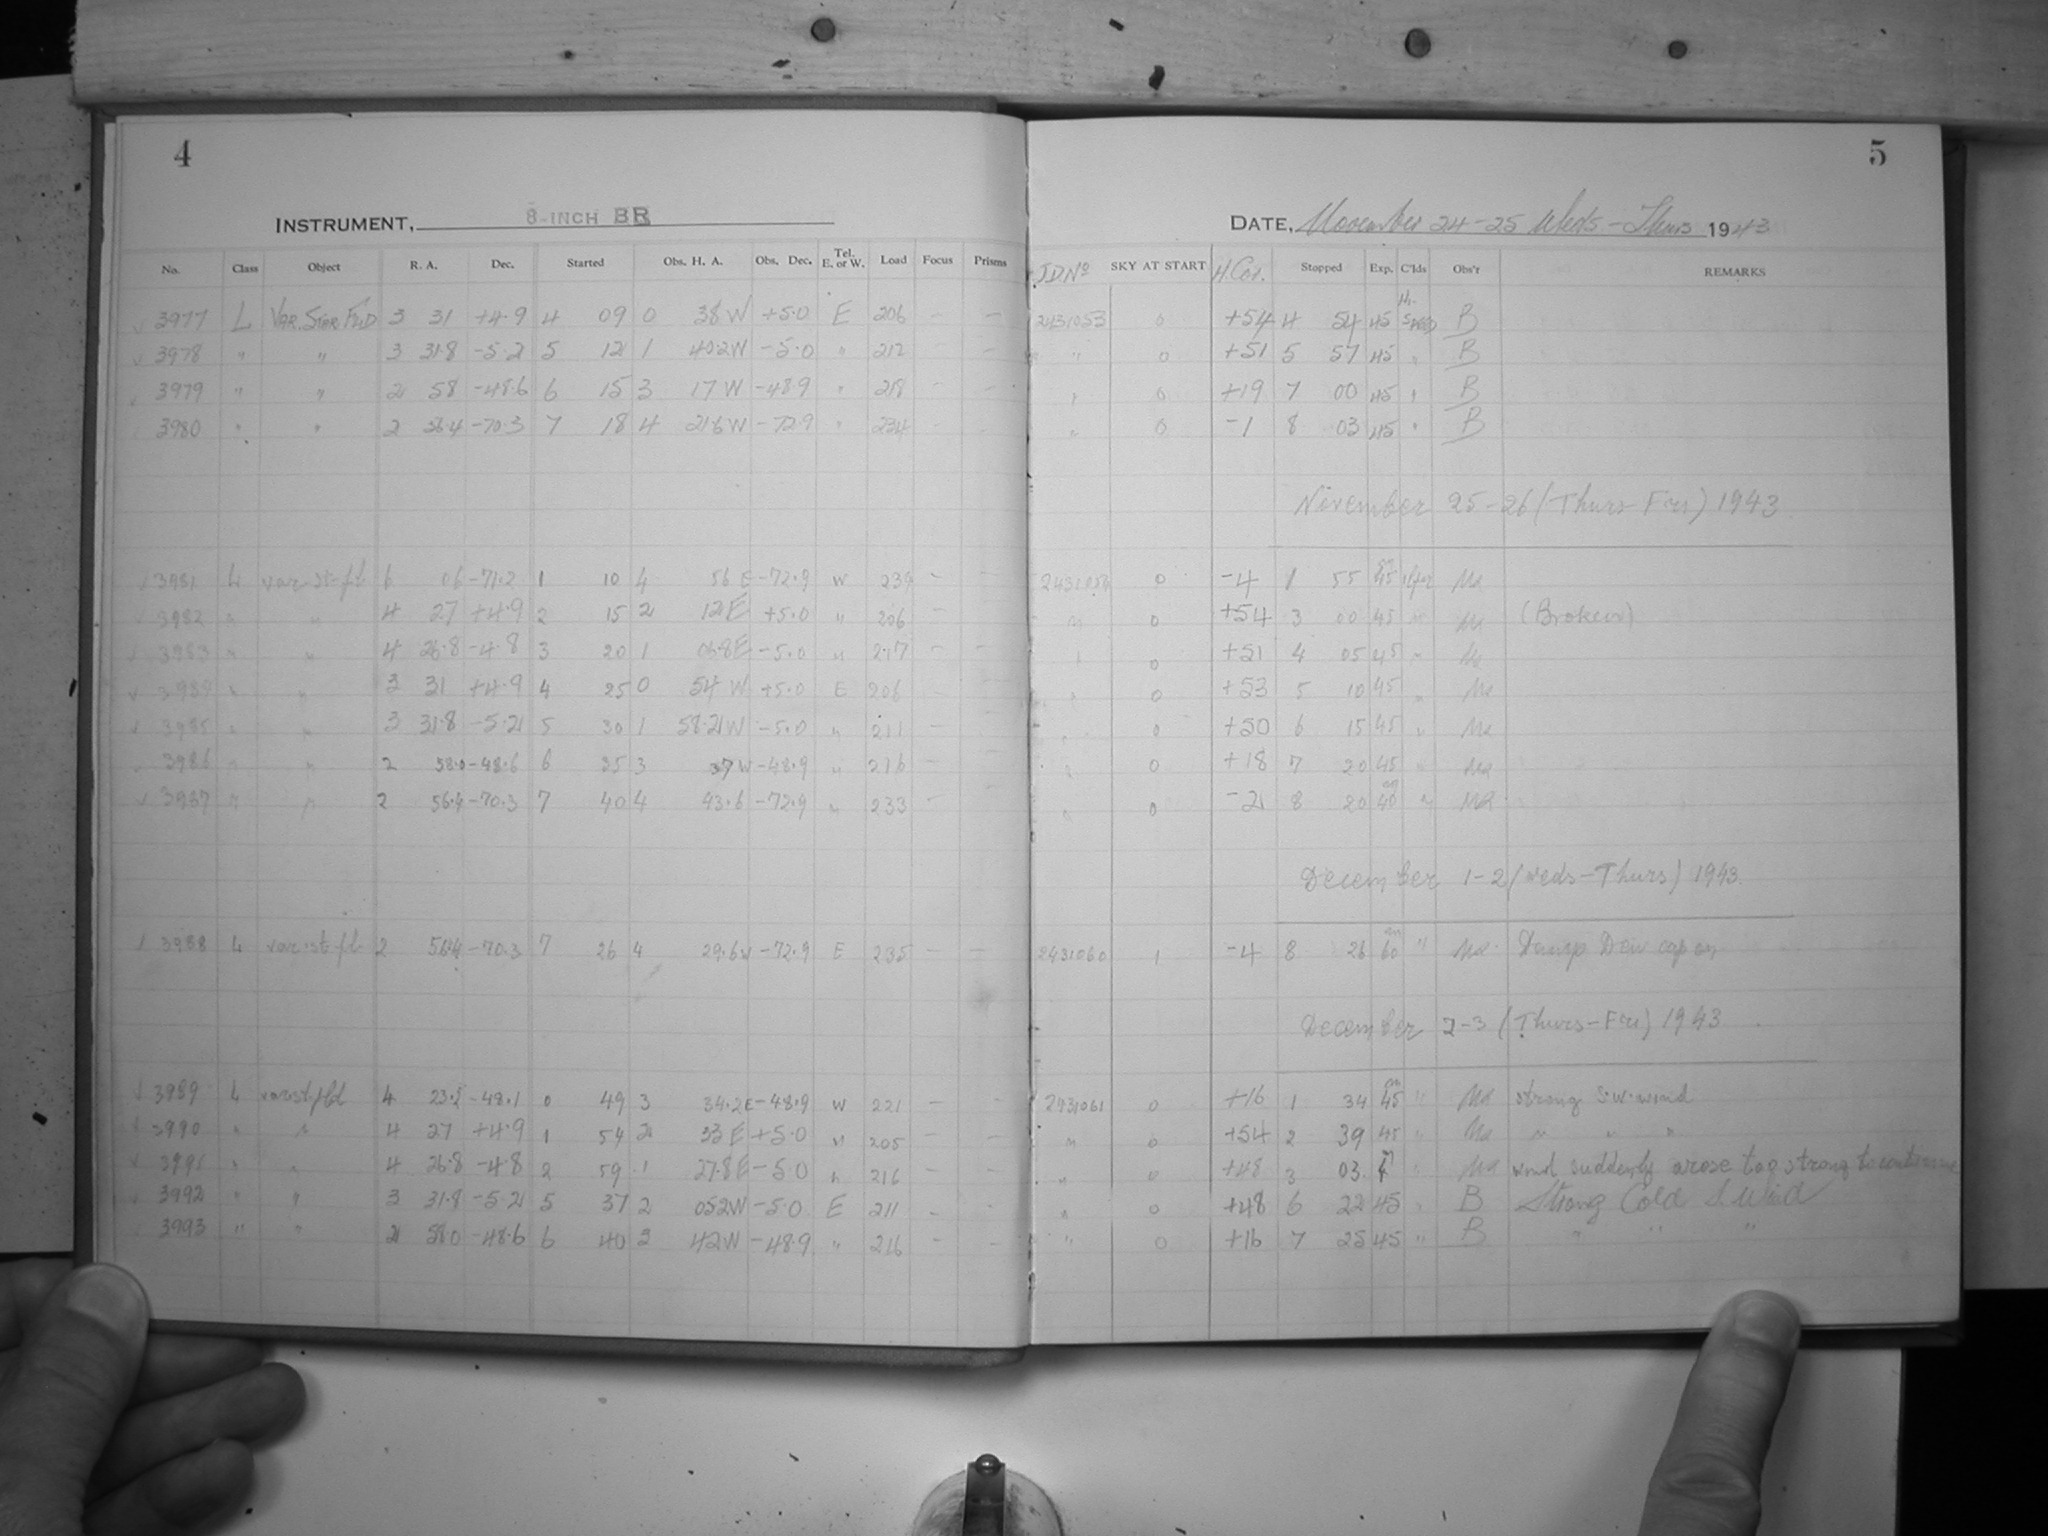 4
INSTRUMENT, 8-INCH BR
No. Class Object R. A. Dec. Started Obs. H. A. Obs. Dec. Tel. E. or W. Load Focus Prisms
3977 L VAR. STAR FLD 3 31 +4.9 4 09 0 38 W +5.0 E 206 – –
3978 " " 3 31.8 -5.2 5 12 1 40.2W -5.0 " 212 – –
3979 " " 2 58 -48.6 6 15 3 17 W -48.9 " 218 – –
3980 " " 2 -70.3 7 18 4 21.6 W -72.9 " 234 – –
3981 L var. st. fld 6 06 -71.2 1 10 4 56 E -72.9 W 239 –
3982 " " 4 27 +4.9 2 15 2 12 E +5.0 " 206 –
3983 " " 4 26.8 -4.8 3 20 1 06.8E -5.0 " 217 – –
3984 " " 3 31 +4.9 4 25 0 54 W +5.0 E 206 – –
3985 " " 3 31.8 -5.2 5 30 1 58.2W -5.0 " 211 – –
3986 " " 2 58.0 -48.6 6 35 3 37 W -48.9 " 216 – –
3987 " " 2 56.4 -70.3 7 40 4 43.6 -72.9 " 233 – –
3988 L var. st. fld 2 56.4 -70.3 7 26 4 29.6W -72.9 E 235 – –
3989 L var.st.fld 4 23.2 -48.1 0 49 3 34.2E -48.9 W 221 – –
3990 " " 4 27 +4.9 1 54 2 33 E +5.0 " 205 – –
3991 " " 4 26.8 -4.8 2 59 1 27.8E -5.0 " 216 – –
3992 " " 3 31.8 -5.2 5 37 2 05.2W -5.0 E 211 – –
3993 " " 2 58.0 -48.6 6 40 3 42W -48.9 " 216 – –
5
DATE, November 24-25 Weds-Thurs 1943
J.D.No SKY AT START H.Cor. Stopped Exp. C'lds Obs'r REMARKS
2431053 0 +54 4 54 45 B
" 0 +51 5 57 45 " B
" 0 +19 7 00 45 " B
" 0 -1 8 03 45 " B
November 25-26 (Thurs-Fri) 1943
2431054 0 -4 1 55 45 Ma
" 0 +54 3 00 45 " Ma (Broken)
" 0 +51 4 05 45 " Ma
" 0 +53 5 10 45 " Ma
" 0 +50 6 15 45 " Ma
" 0 +18 7 20 45 " Ma
" 0 -2 8 20 40 " Ma
December 1-2 (Weds-Thurs) 1943
2431060 1 -4 8 26 60 " Ma Damp Dew cap on
December 2-3 (Thurs-Fri) 1943
2431061 0 +16 1 34 45 " Ma strong S.W. wind
" 0 +54 2 39 45 " Ma " " "
" 0 +48 3 03 4 " Ma wind suddenly arose too strong to continue
" 0 +48 6 22 45 " B Strong Cold S. Wind
" 0 +16 7 25 45 " B " " "